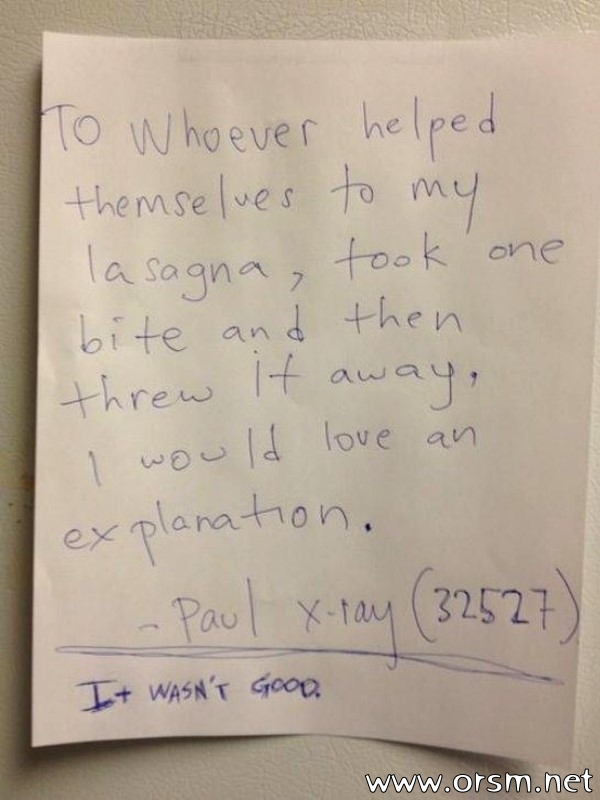 To Whoever helped
themselves to my
lasagna, took one
bite and then
threw it away.
I would love an
explanation.
- Paul x-ray (32527)
It WASN'T GOOD.
www.orsm.net